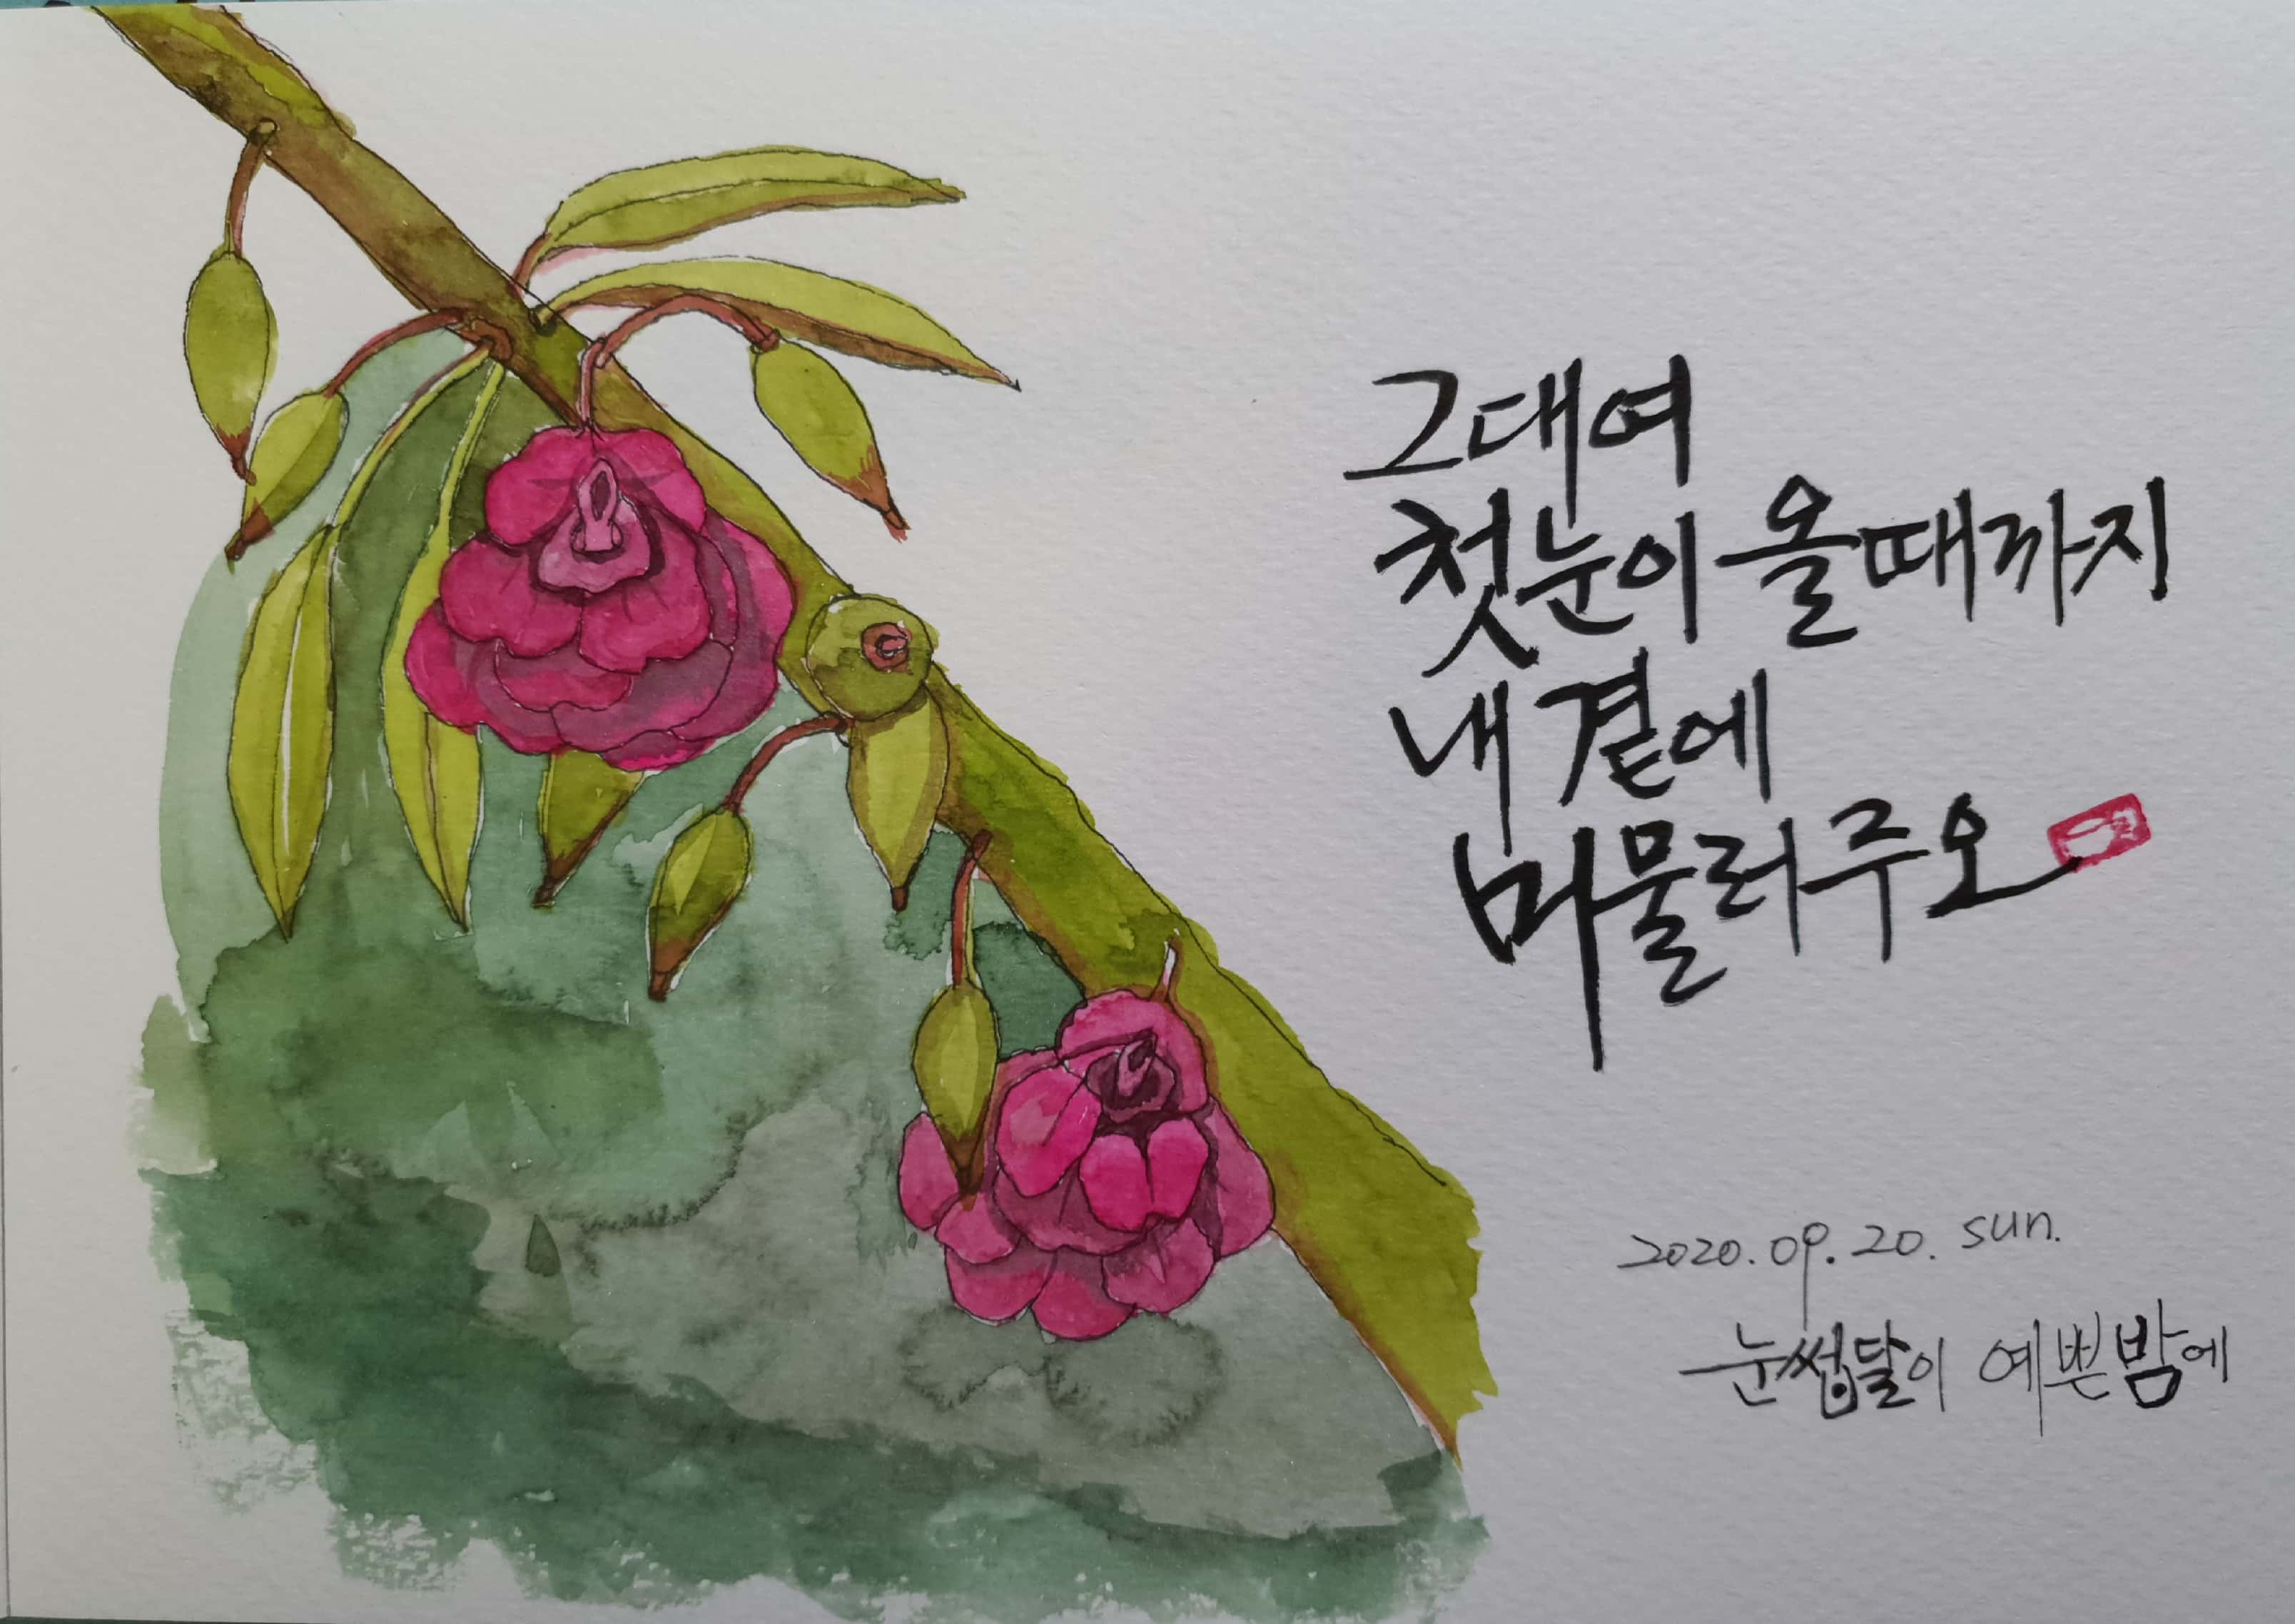 그대여
첫눈이 올때까지
내 곁에
머물러주오
2020.09.20. sun.
눈썹달이 예쁜밤에